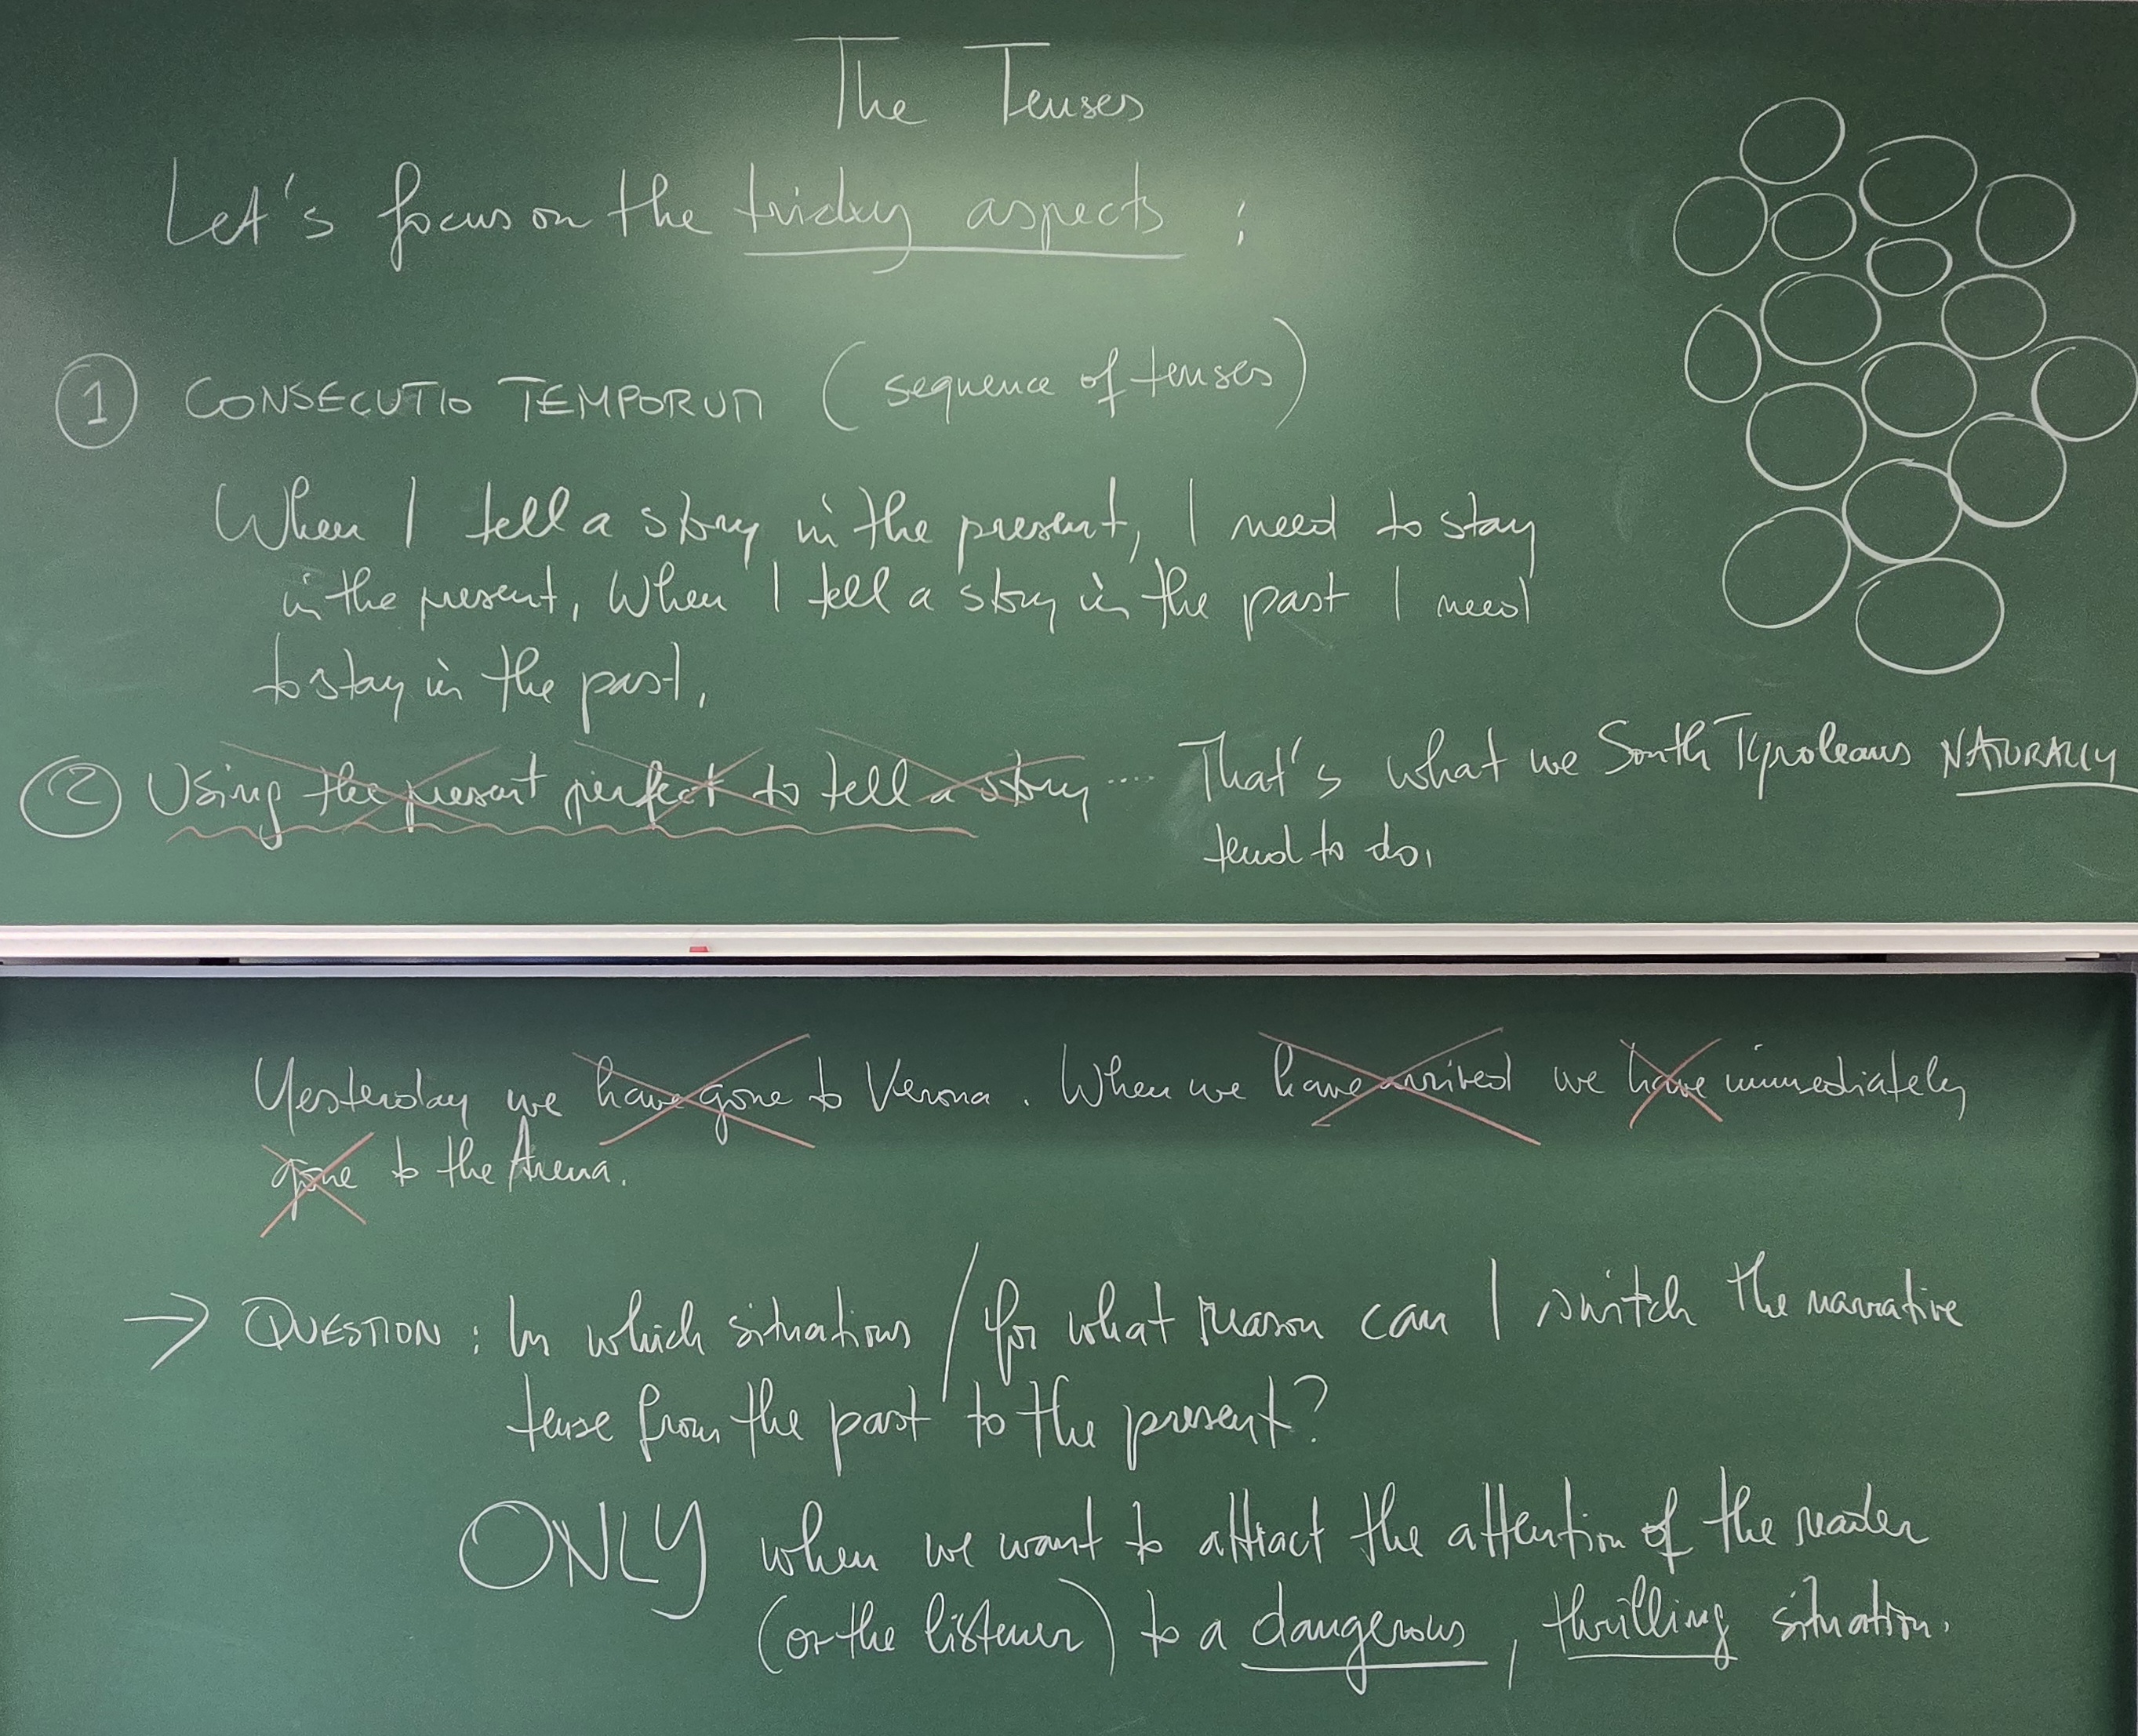 The Tenses
Let's focus on the tricky aspects :
1 CONSECUTIO TEMPORUM (sequence of tenses)
When I tell a story in the present, I need to stay
in the present, When I tell a story in the past I need
to stay in the past,
2 Using the present perfect to tell a story .... That's what we South Tyroleans NATURALLY
tend to do,
Yesterday we have gone to Verona. When we have arrived we have immediately
gone to the Arena.
→ QUESTION : In which situations / for what reason can I switch the narrative
tense from the past to the present?
ONLY when we want to attract the attention of the reader
(or the listener) to a dangerous, thrilling situation.